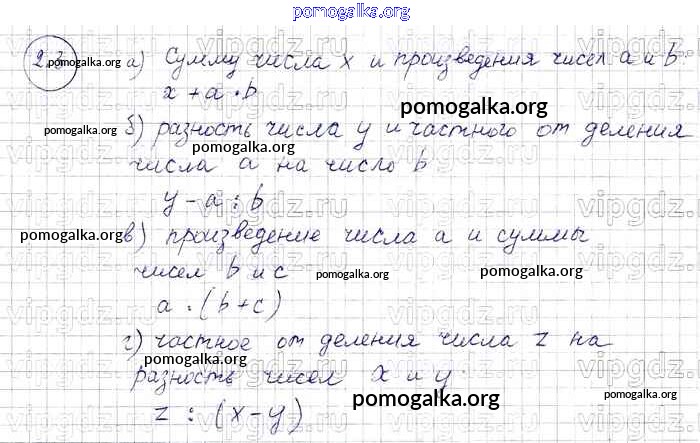 pomogalka.org
а) Сумму числа x и произведения чисел a и b.
pomogalka.org
x + a · b
pomogalka.org
б) разность числа y и частного от деления
pomogalka.org
числа a на число b
y - a : b
pomogalka.org
pomogalka.org в) произведение числа a и суммы
чисел b и c
pomogalka.org pomogalka.org
a · (b + c)
г) частное от деления числа z на
pomogalka.org
разность чисел x и y.
z : (x - y)
pomogalka.org